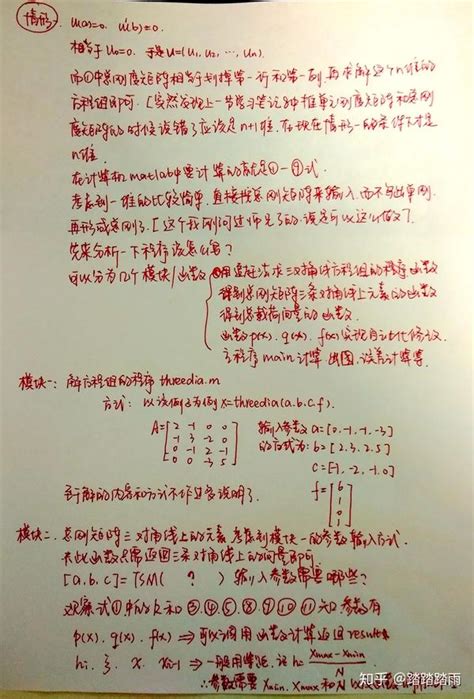 情形一. u(a)=0. u'(b)=0.
相当于 u₀=0. 于是 u=(u₁, u₂, ⋯, uₙ).
而①中总刚度矩阵相当于划掉第一行和第一列, 再求解这个n维的
方程组即可. [突然发现上一节学习笔记中框单元刚度矩阵和总刚
度矩阵的时候误错了应该是n+1维. 在现在情形一的条件下才是
n维.
在计算机matlab中要计算的有就是①-⑨式.
考虑到一维的比较简单, 直接按总刚矩阵来输入, 而不写出单刚
再形成总刚了. [这个我刚问过师兄了的, 说是可以这么做].
先来分析一下程序该怎么写?
可以分为几个模块/函数
用追赶法求三对角线方程组的程序函数
得到总刚矩阵三条对角线上元素值的函数
得到总载荷向量的函数
函数p(x). q(x). f(x)实现自动化修改.
主程序main计算 出图. 误差计算等.
模块一: 解方程组的程序 threedia.m
方式: 以该例子为例 x=threedia(a.b.c.f).
A=[2 -1 0 0
-1 3 -2 0
0 -1 2 -1
0 0 -3 5]
输入参数 a=[0,-1,-1,-3]
的方式为: b=[2,3,2,5]
c=[-1,-2,-1,0]
f=[6 1 0 1]
至于解的内容和方式不作过多说明了.
模块二. 总刚矩阵三对角线上的元素. 考虑到模块一的参数输入方式.
关此函数只需返回三条对角线上的向量即可
[a.b.c]=TSM( ? ) 输入参数需要哪些?
观察式①中的k和③,④,⑤,⑧,⑦,⑩,⑪六口参数有
p(x). q(x). f(x) ⇒ 可以调用函数计算返回results
hᵢ. ξ. xᵢ. xᵢ₋₁ ⇒ 一般用等距. 记 h: (xmax-xmin)/N
∴参数需要 xmin. xmax 和N
知乎 @踏踏踏雨